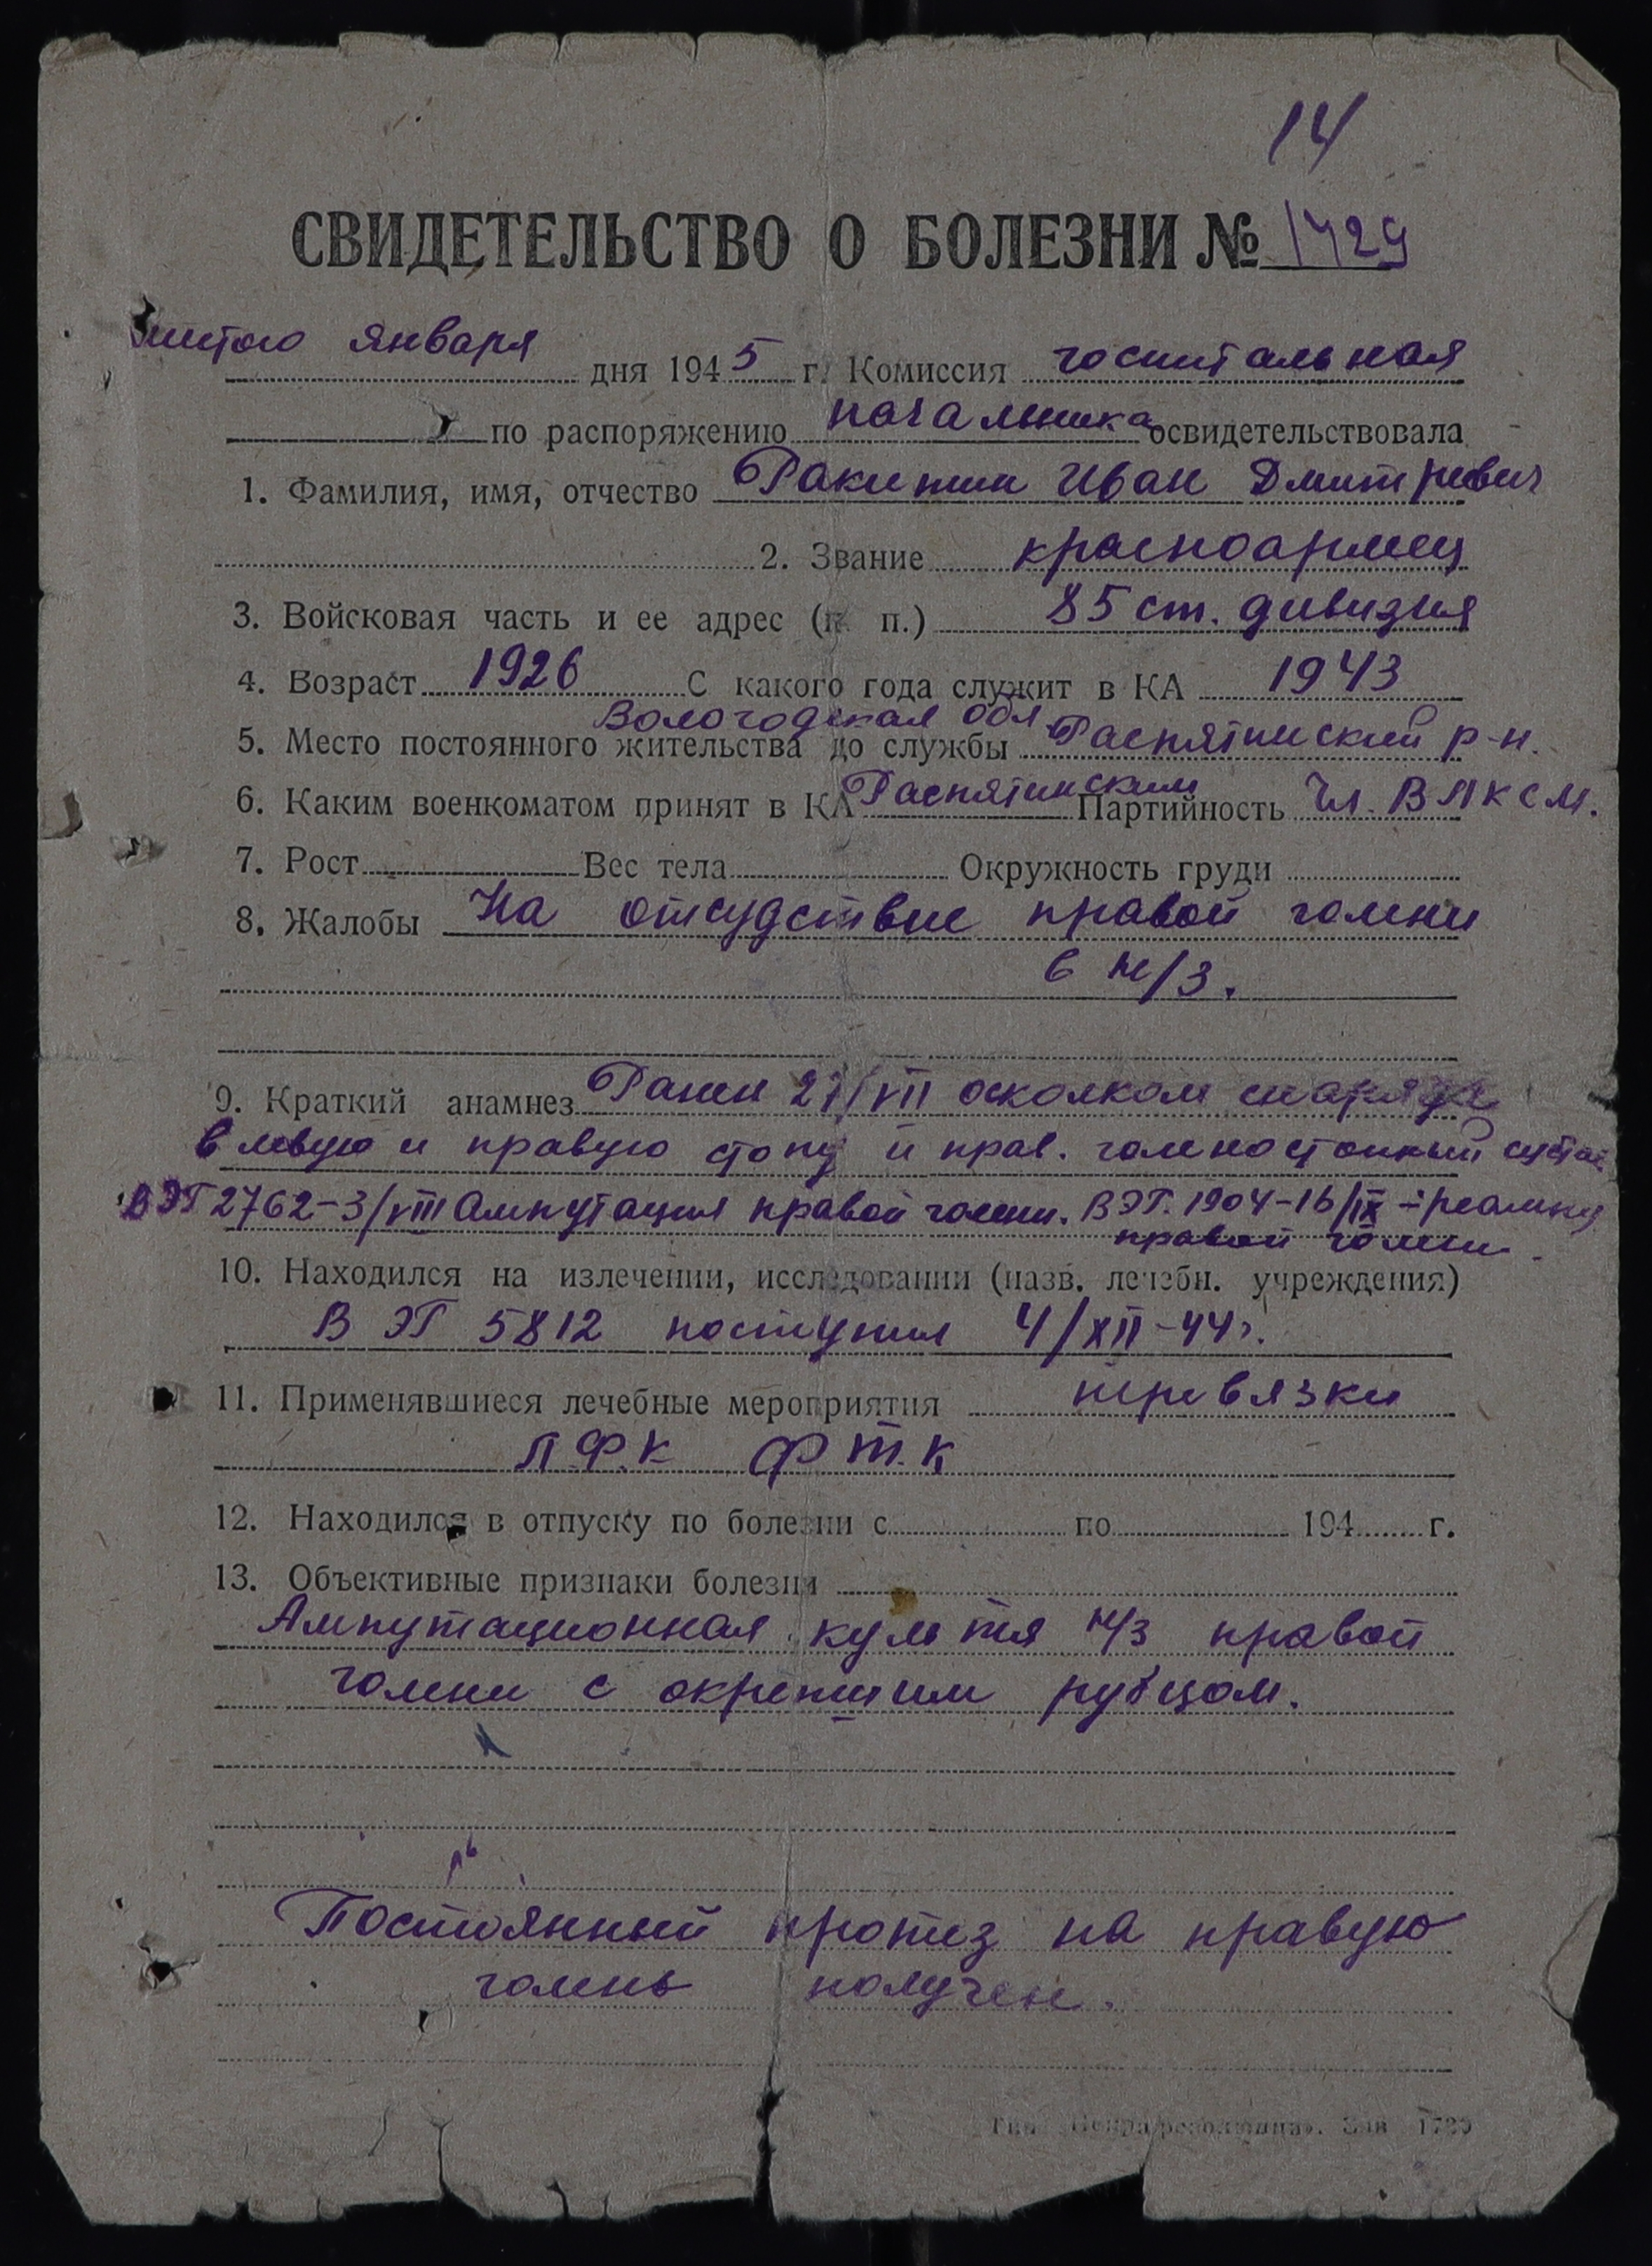 14
СВИДЕТЕЛЬСТВО О БОЛЕЗНИ № 1429
января дня 1945 г. Комиссия госпитальная
по распоряжению начальника освидетельствовала
1. Фамилия, имя, отчество Ракитин Иван Дмитриевич
2. Звание красноармеец
3. Войсковая часть и ее адрес (п. п.) 85 ст. дивизия
4. Возраст 1926 С какого года служит в КА 1943
Вологодская обл.
5. Место постоянного жительства до службы Распятинский р-н.
6. Каким военкоматом принят в КА Распятинским Партийность Чл. ВЛКСМ.
7. Рост Вес тела Окружность груди
8. Жалобы На отсудствие правой голени
в н/3.
9. Краткий анамнез Ранен 27/VII осколком снаряда
в левую и правую стопу и прав. голеностопный сустав
В ЭГ 2762-3/VIII Ампутация правой голени. В ЭГ. 1904-16/IX - реампут
правой голени.
10. Находился на излечении, исследовании (назв. лечебн. учреждения)
В ЭГ 5812 поступил 4/XII-44г.
11. Применявшиеся лечебные мероприятия перевязки
Л.Ф.К Ф.Т.К
12. Находился в отпуску по болезни с по 194 г.
13. Объективные признаки болезни
Ампутационная культя н/3 правой
голени с окрепшим рубцом.
Постоянный протез на правую
голень получен.
Тип. Зак 1739